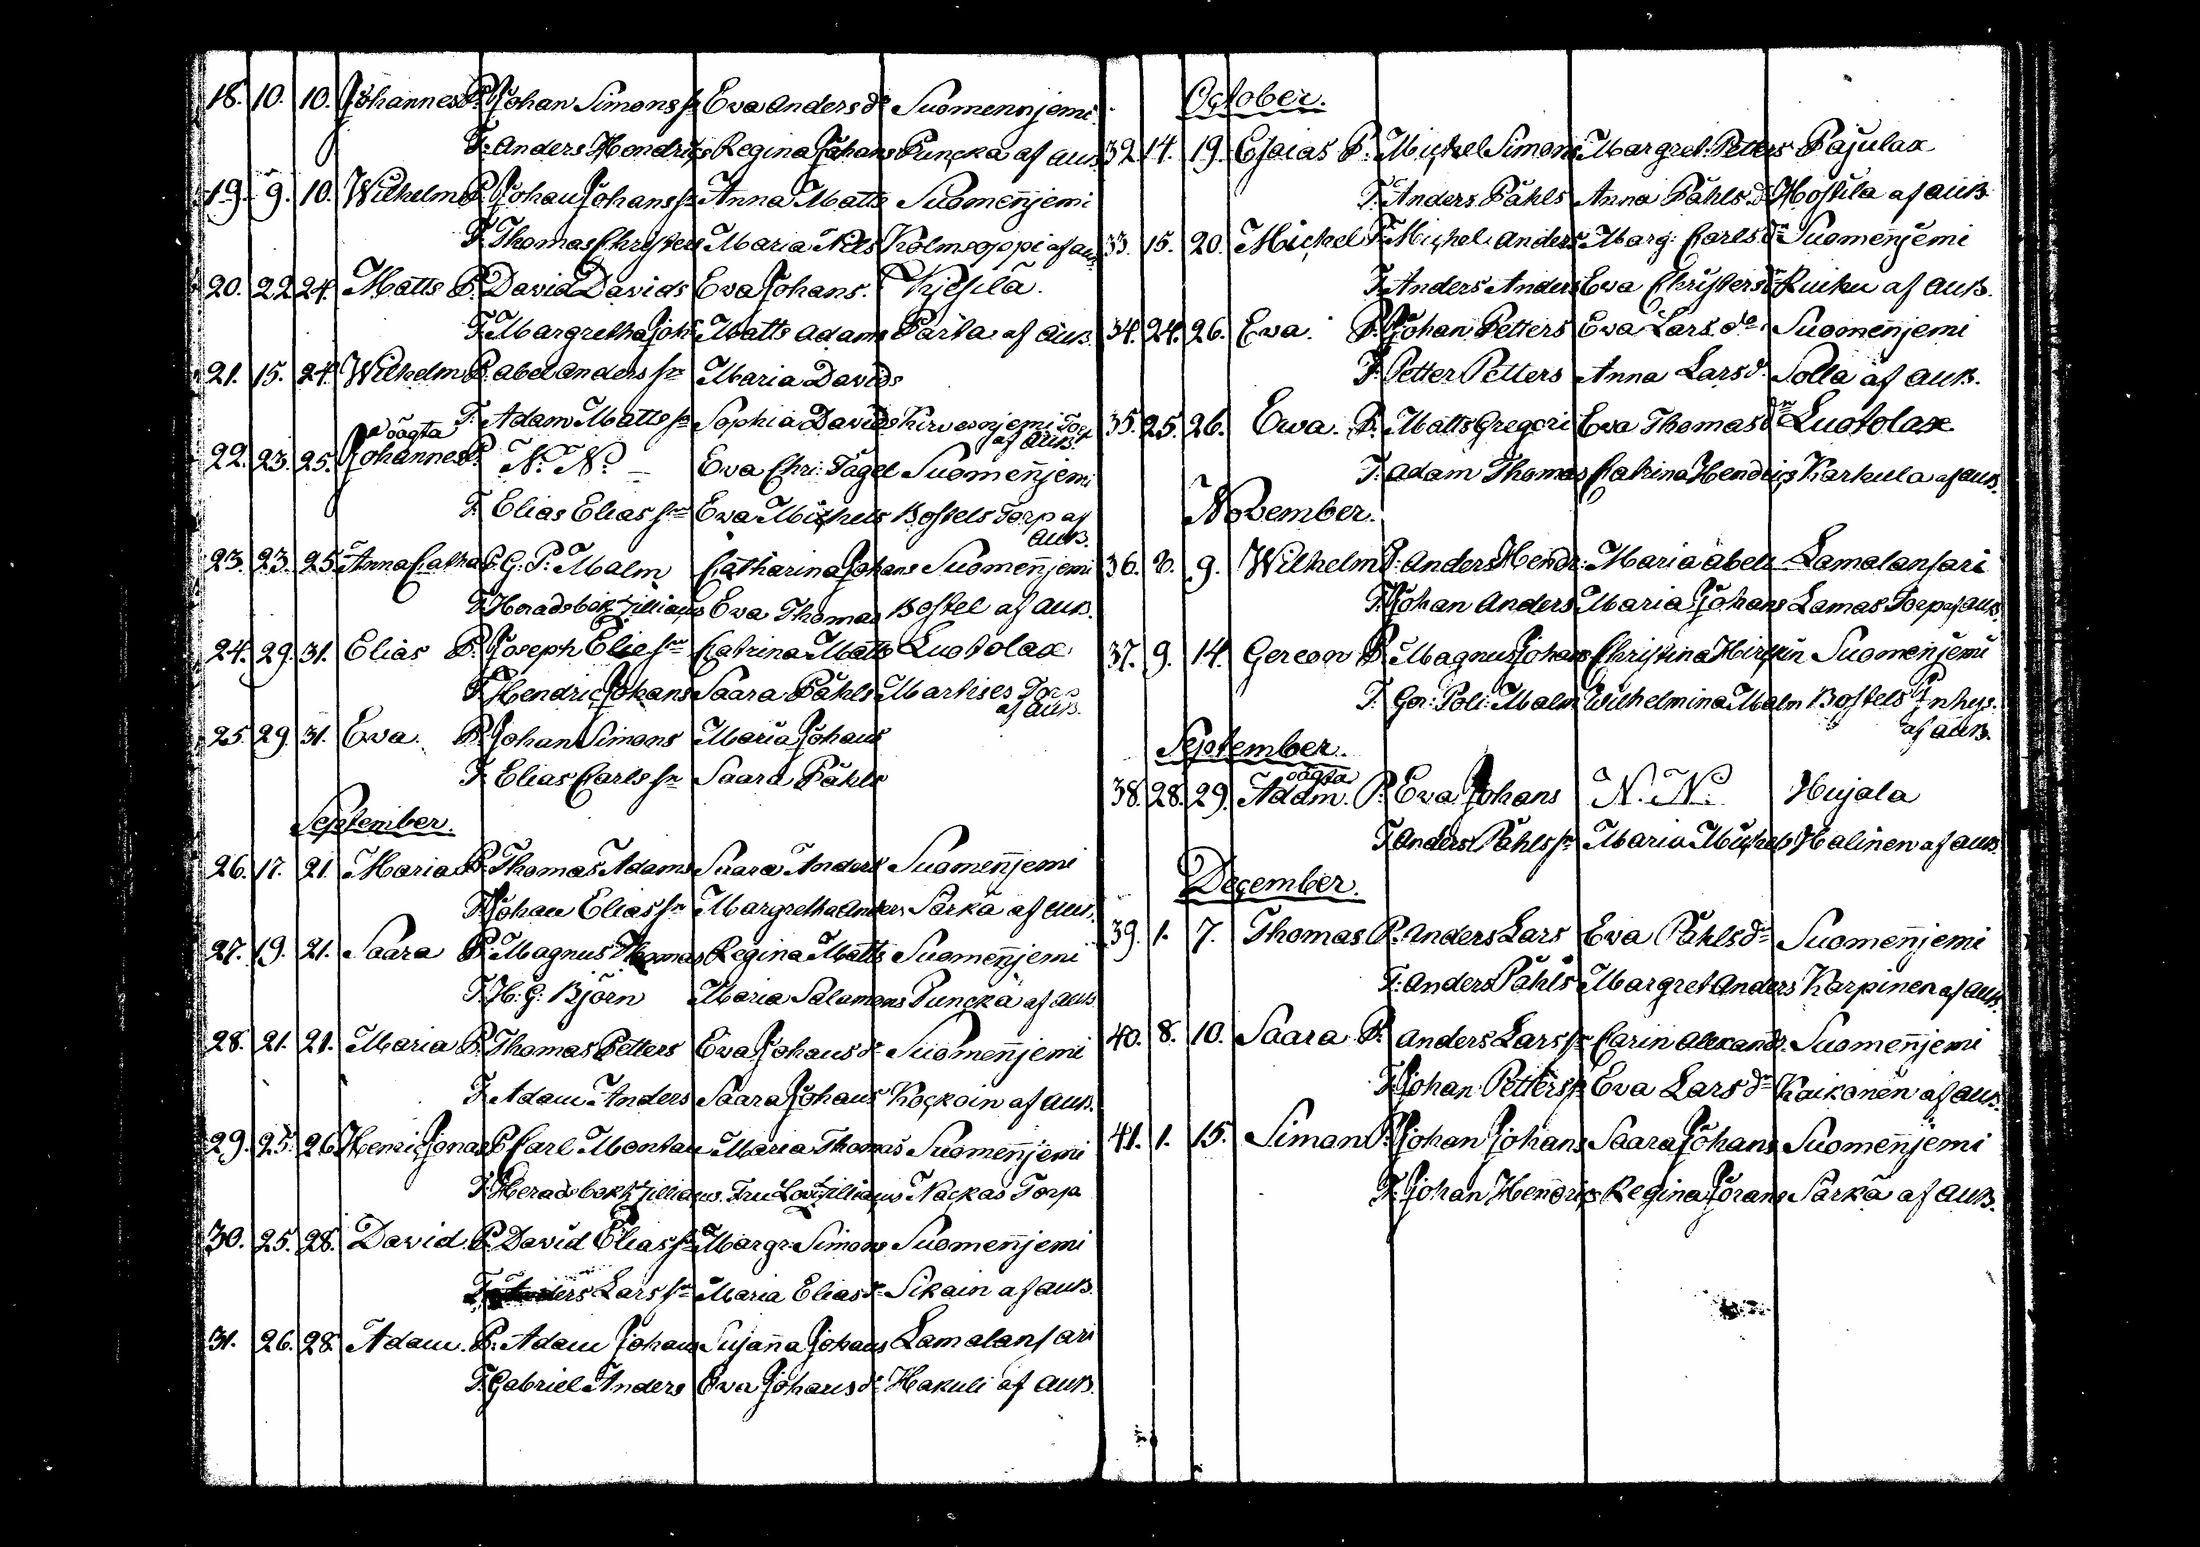 18. 10. 10. Johannes P. Johan Simons sn Eva Anders dr Suomennjemi.
F. Anders Hendrics Regina Johans Puncka af aus.
19. 9. 10. Wilhelm P. Johan Johans sn Anna Matts Suomenjemi
F. Thomas Christers Maria Nils Kolmsoppi af aus
20. 22. 24. Matts P. David Davids Eva Johans. Kjesilä.
F. Margretha Joh Matts Adams Partia af aus.
21. 15. 24. Wilhelm P. Abel Anders sn Maria Davids
F. Adam Matts sn Sophia Davids Kirvesnjemi Torp
af aus.
oägta
22. 23. 25. Johannes P. N. N. Eva Chri: Tägel Suomenjemi
F. Elias Elias sn Eva Michels Bostels Torp af
aus.
23. 23. 25. Anna Catha P. G. P. Malm Catharina Johans Suomenjemi
F. Heradsbok. Zilliacus Eva Thomas Bostel af aus.
24. 29. 31. Elias P. Joseph Elia sn Catrina Matts Luotolax
F. Hendric Johans Saara Påhls Markises Torp
af aus.
25. 29. 31. Eva. P. Johan Simons Maria Johans
F. Elias Carls sn Saara Påhls
September.
26. 17. 21. Maria P. Thomas Adams Saara Anders Suomenjemi
F. Johan Elias sn Margretha Anders Särkä af aus.
27. 19. 21. Saara P. Magnus Thomas Regina Matts Suomenjemi
F. H: G: Björn Maria Salamons Puncka af aus
28. 21. 21. Maria P. Thomas Petters Eva Johans dr Suomenjemi
F. Adam Anders Saara Johans Kockoin af aus.
29. 25. 26. Henric Jonas P. Carl Montan Maria Thomas Suomenjemi
F. Heradsbok. Zilliacus. Fru Lov. Zilliacus Nackas Torp
30. 25. 28. David. P. David Elias sn Margr: Simons Suomenjemi
F. Anders Lars sn Maria Elias dr Sikain af aus.
31. 26. 28. Adam. P. Adam Johans Susanna Johans Lamalansari
F. Gabriel Anders Eva Johans dr Hakuli af aus.
October.
32. 14. 19. Esaias P. Michel Simons Margret. Petters Pajulax
F. Anders Påhls Anna Påhls d Hostila af aus
33. 15. 20. Michel P. Michel Anders Marg: Carls dr Suomenjemi
F. Anders Anders Eva Christers dr Kuiku af aus.
34. 24. 26. Eva. P. Johan Petters Eva Lars dr Suomenjemi
F. Petter Petters Anna Lars d. Solla af aus.
35. 25. 26. Ewa. P. Matts Gregori Eva Thomas dr Luotolax
F. Adam Thomas Catrina Hendrics Karkula af aus.
November.
36. 8. 9. Wilhelm P. Anders Hendr: Maria Abels Lamalansari
F. Johan Anders Maria Johans Lamas Torp af aus.
37. 9. 14. Gereon P. Magnus Johans Christina Hirskin Suomenjemi
F. Ger: Poli: Malm Wilhelmina Malm Bostels Inhys.
af aus.
September.
oägta
38. 28. 29. Adam. P. Eva Johans N. N. Hujala
F. Anders Påhls sn Maria Michels Halinen af aus.
December.
39. 1. 7. Thomas P. Anders Lars Eva Påhls dr Suomenjemi
F. Anders Påhls Margret Anders Karpinen af aus.
40. 8. 10. Saara P. Anders Lars sn Carin Alexandr. Suomenjemi
F. Johan Petters sn Eva Lars dr Kaikonen af aus.
41. 1. 15. Siman P. Johan Johans Saara Johans Suomenjemi
F. Johan Hendrics Regina Jörans Särkä af aus.